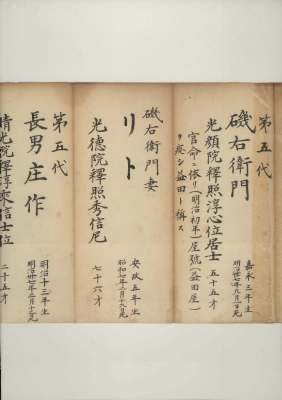 第五代
磯右衛門
嘉永三年生
明治卅七年九月一日寂
光顔院釋照淳心位居士 五十五才
官命ニ依リ(明治初年)屋號(益田屋)
ヲ廃シ益田ト稱ス
磯右衛門妻
リト
安政五年生
昭和七年三月十九日寂
光徳院釋照秀信尼 七十六才
第五代
長男庄作
明治十三年生
明治卅七年三月十三日寂
晴光院釋淳乘信士位 二十五才